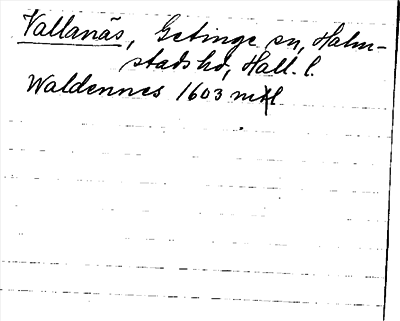 Vallanäs, Getinge sn, Halm-
stads hd, Hall. l.
Waldennes 1603 mtl